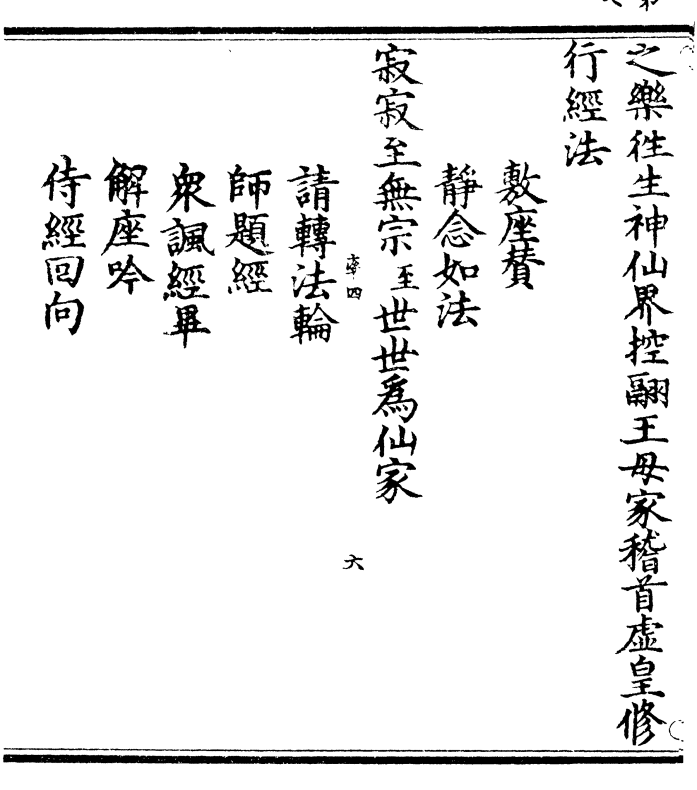 之樂徃生神仙界控翮王母家稽首虚皇修
行經法
敷座賛
靜念如法
寂寂至無宗至世世爲仙家
六
請轉法輪
師題經
衆諷經畢
解座吟
侍經回向